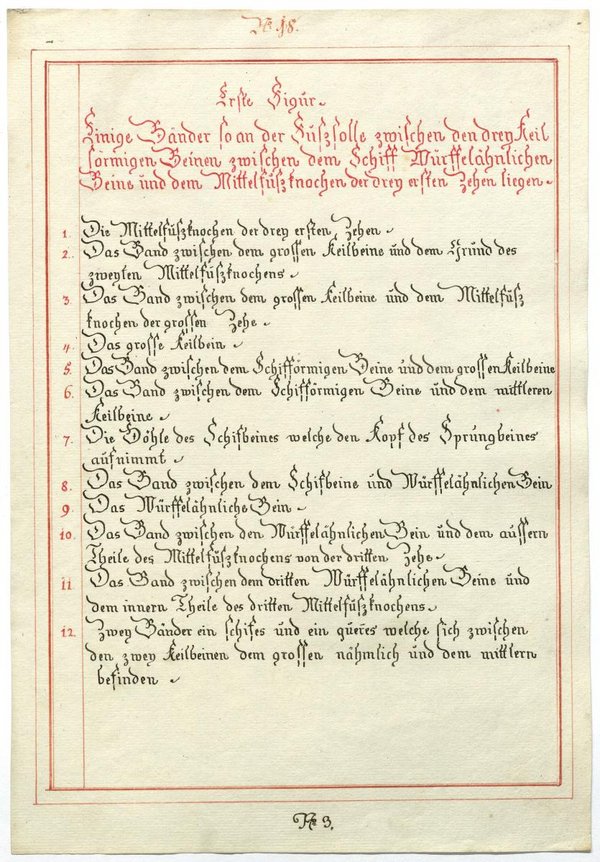 No 18.
Erste Figur.
Einige Bänder so an der Fußsolle zwischen den drey Keil
förmigen Beinen zwischen dem Schiff Würffelähnlichen
Beine und dem Mittelfußknochen der drey ersten Zehen liegen.
1. Die Mittelfußknochen der drey ersten Zehen.
2. Das Band zwischen dem grossen Keilbeine und dem Grund des
zweyten Mittelfußknochens.
3. Das Band zwischen dem grossen Keilbeine und dem Mittelfuß
knochen der grossen Zehe.
4. Das grosse Keilbein.
5. Das Band zwischen dem Schifförmigen Beine und dem grossen Keilbeine
6. Das Band zwischen dem Schifförmigen Beine und dem mittleren
Keilbeine.
7. Die Höhle des Schifbeines welche den Kopf des Sprungbeines
aufnimmt.
8. Das Band zwischen dem Schifbeine und Würffelähnlichen Bein
9. Das Würffelähnliche Bein.
10. Das Band zwischen den Würffelähnlichen Bein und dem aussern
Theile des Mittelfußknochens von der dritten Zehe.
11. Das Band zwischen dem dritten Würffelähnlichen Beine und
dem innern Theile des dritten Mittelfußknochens.
12. Zwey Bänder ein schifes und ein queres welche sich zwischen
den zwey Keilbeinen dem grossen nähmlich und dem mittlern
befinden.
No 3.